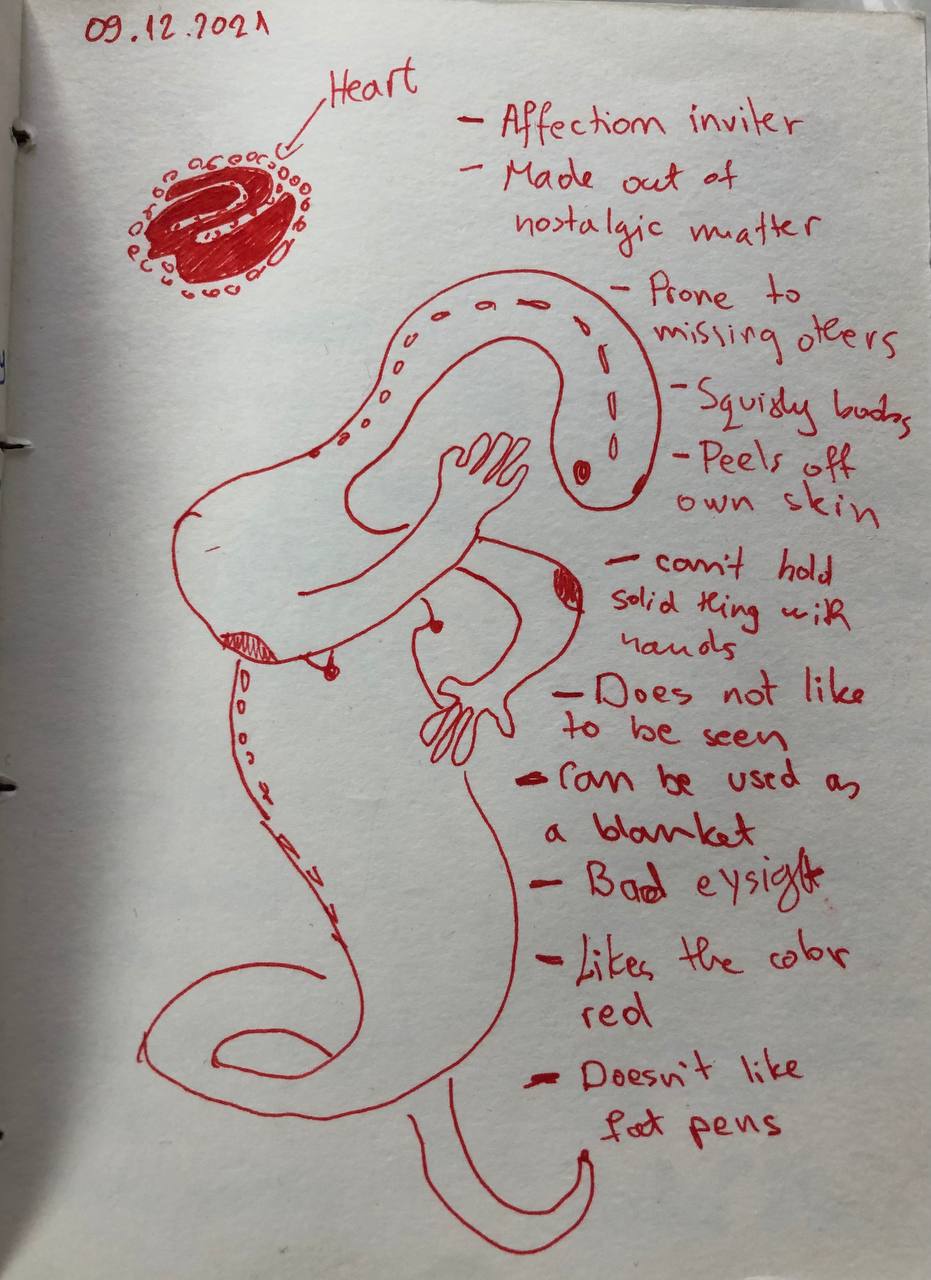 09.12.2021
Heart
- Affection inviter
- Made out of
nostalgic matter
- Prone to
missing others
- Squishy boobs
- Peels off
own skin
- can't hold
solid thing with
hands
- Does not like
to be seen
- Can be used as
a blanket
- Bad eysight
- Likes the color
red
- Doesn't like
fat pens